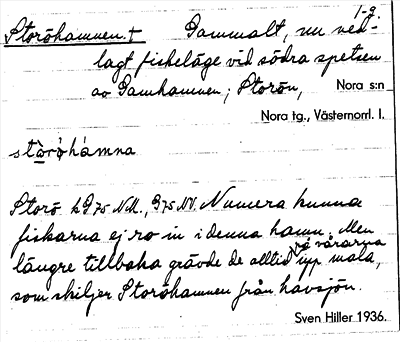 1-9.
Storöhamnen † Gammalt, nu ned-
lagt fiskeläge vid södra spetsen
av Gamhamnen; Storön, Nora s:n
Nora tg., Västernorrl. l.
stòröhámna
Storö k G75 NV. Numera kunna
fiskarna ej ro in i denna hamn. Men
längre tillbaka grävde de alltid på vårarna
upp mala,
som skiljer Storöhamnen från havsjön.
Sven Hiller 1936.